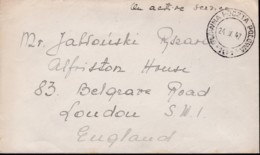 On active service
Mr. Jabłoński Ryszard
Alfriston House
83. Belgrave Road
London S.W.1.
England